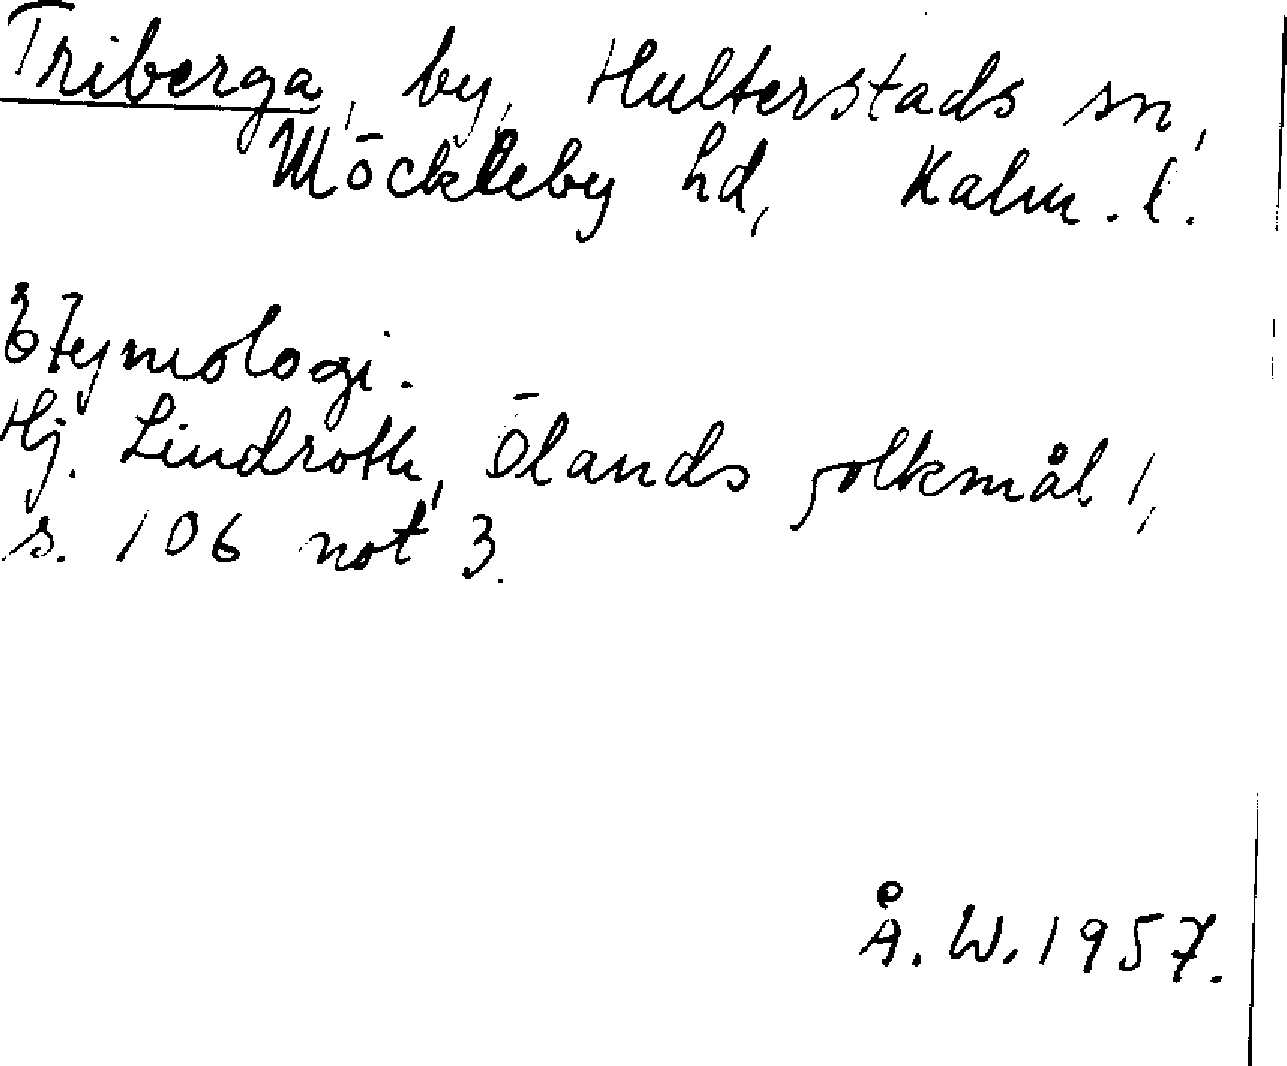 Triberga, by, Hulterstads sn,
Möckleby hd, Kalm. l.
Etymologi.
Hj. Lindroth, Ölands folkmål 1,
s. 106 not 3.
Å. W. 1957.